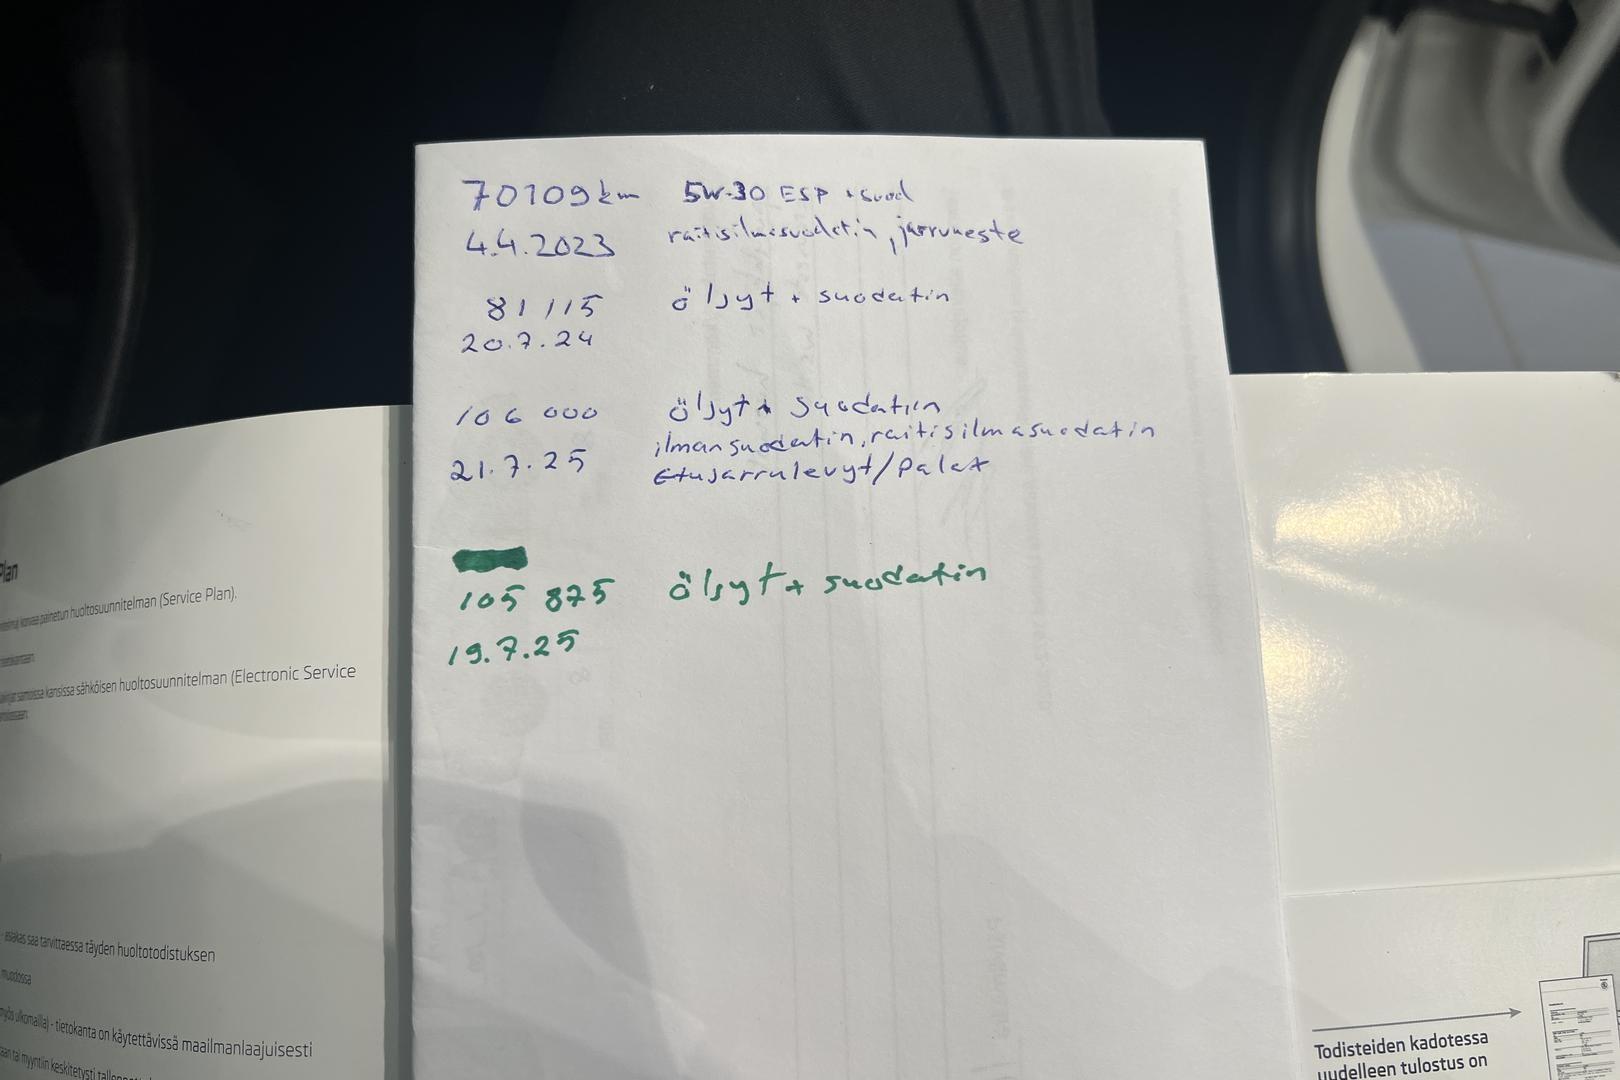 70109km 5W-30 ESP + suod
4.4.2023 raitisilmasuodatin, jarruneste
81 115 öljyt + suodatin
20.7.24
106 000 öljyt + suodatin
ilmansuodatin, raitisilmasuodatin
21.7.25 Etujarrulevyt/palat
105 875 öljyt + suodatin
19.7.25
Plan
korvaa painetun huoltosuunnitelman (Service Plan).
samoissa kansissa sähköisen huoltosuunnitelman (Electronic Service
asiakas saa tarvittaessa täyden huoltotodistuksen
muodossa
myös ulkomailla) - tietokanta on käytettävissä maailmanlaajuisesti
tai myyntiin keskitetysti
Todisteiden kadotessa
uudelleen tulostus on